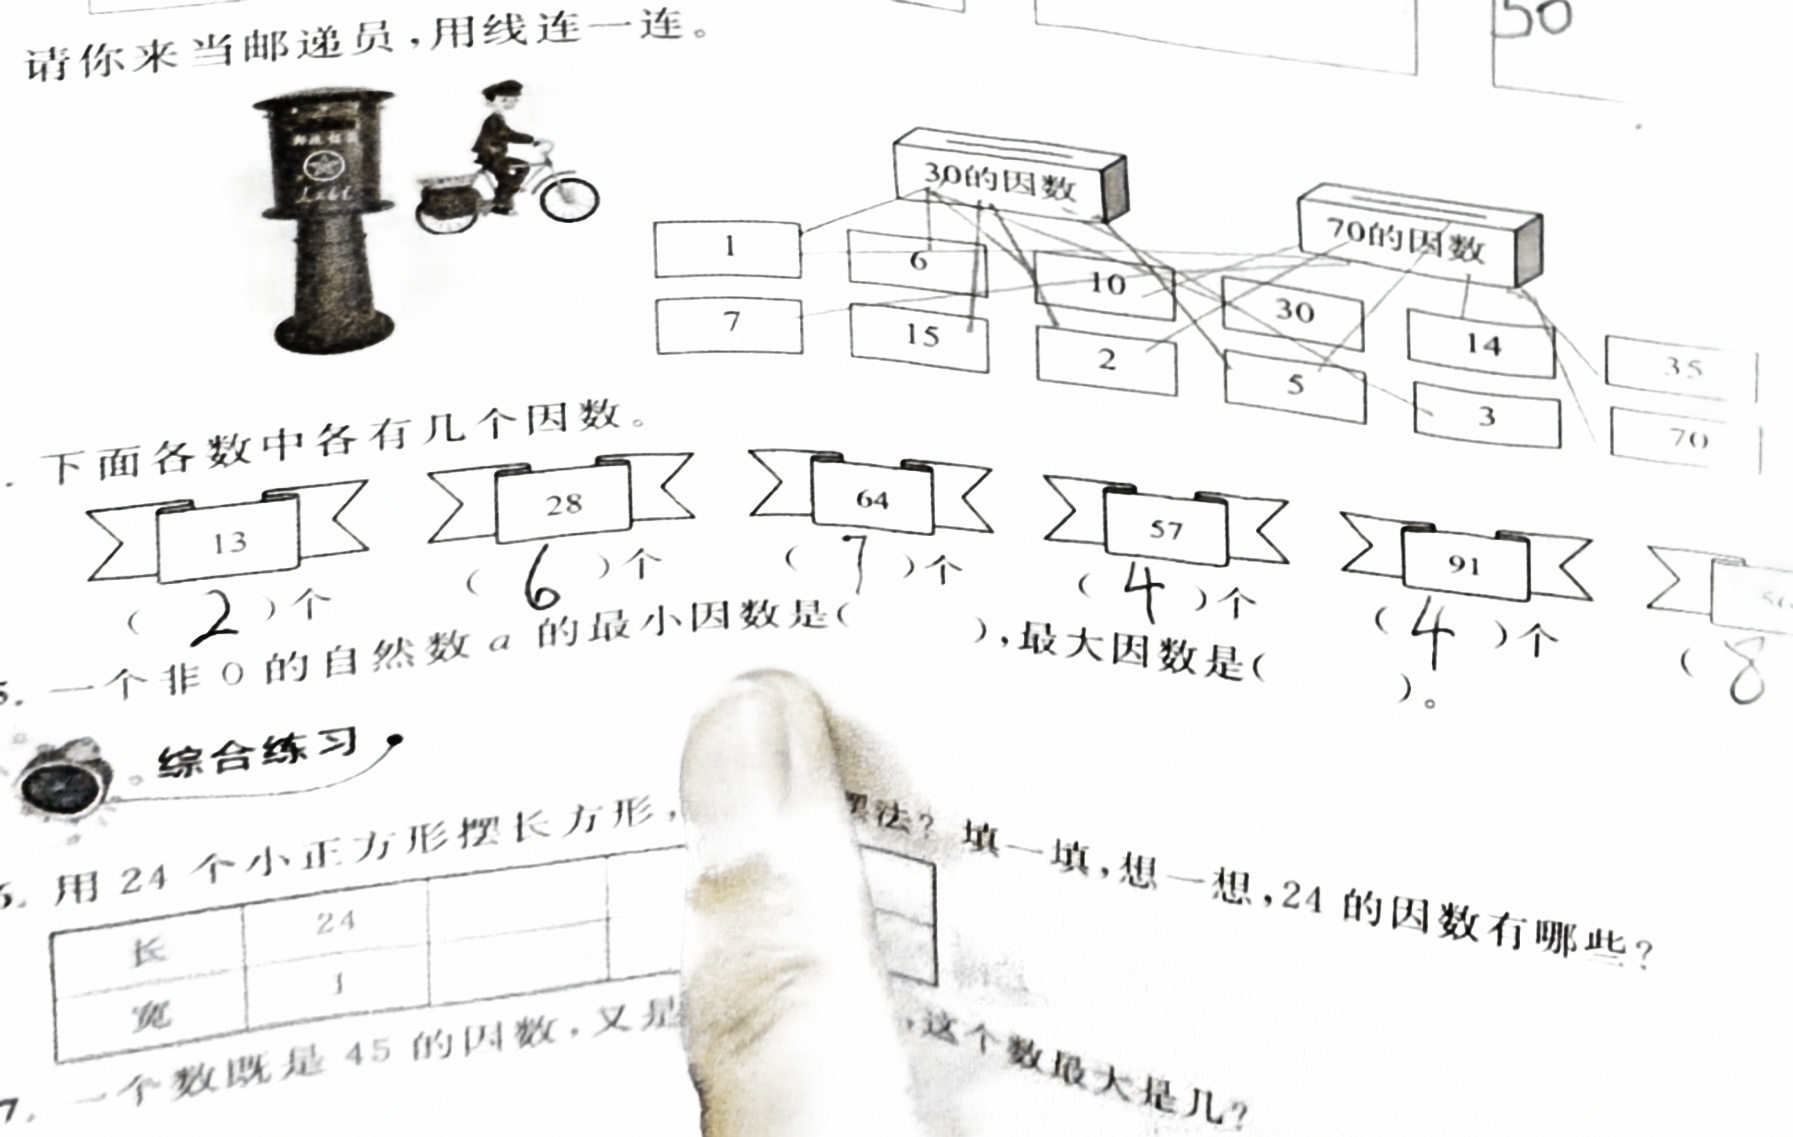 50
请你来当邮递员,用线连一连。
30的因数
70的因数
1 6 10 30 14 35
7 15 2 5 3 70
下面各数中各有几个因数。
13 28 64 57 91
( 2 )个 ( 6 )个 ( 7 )个 ( 4 )个 ( 4 )个 ( 8
5. 一个非 0 的自然数 a 的最小因数是( ),最大因数是( )。
综合练习
6. 用 24 个小正方形摆长方形, 摆法? 填一填,想一想,24 的因数有哪些?
长 24
宽 1
7. 一个数既是 45 的因数,又是 ,这个数最大是几?